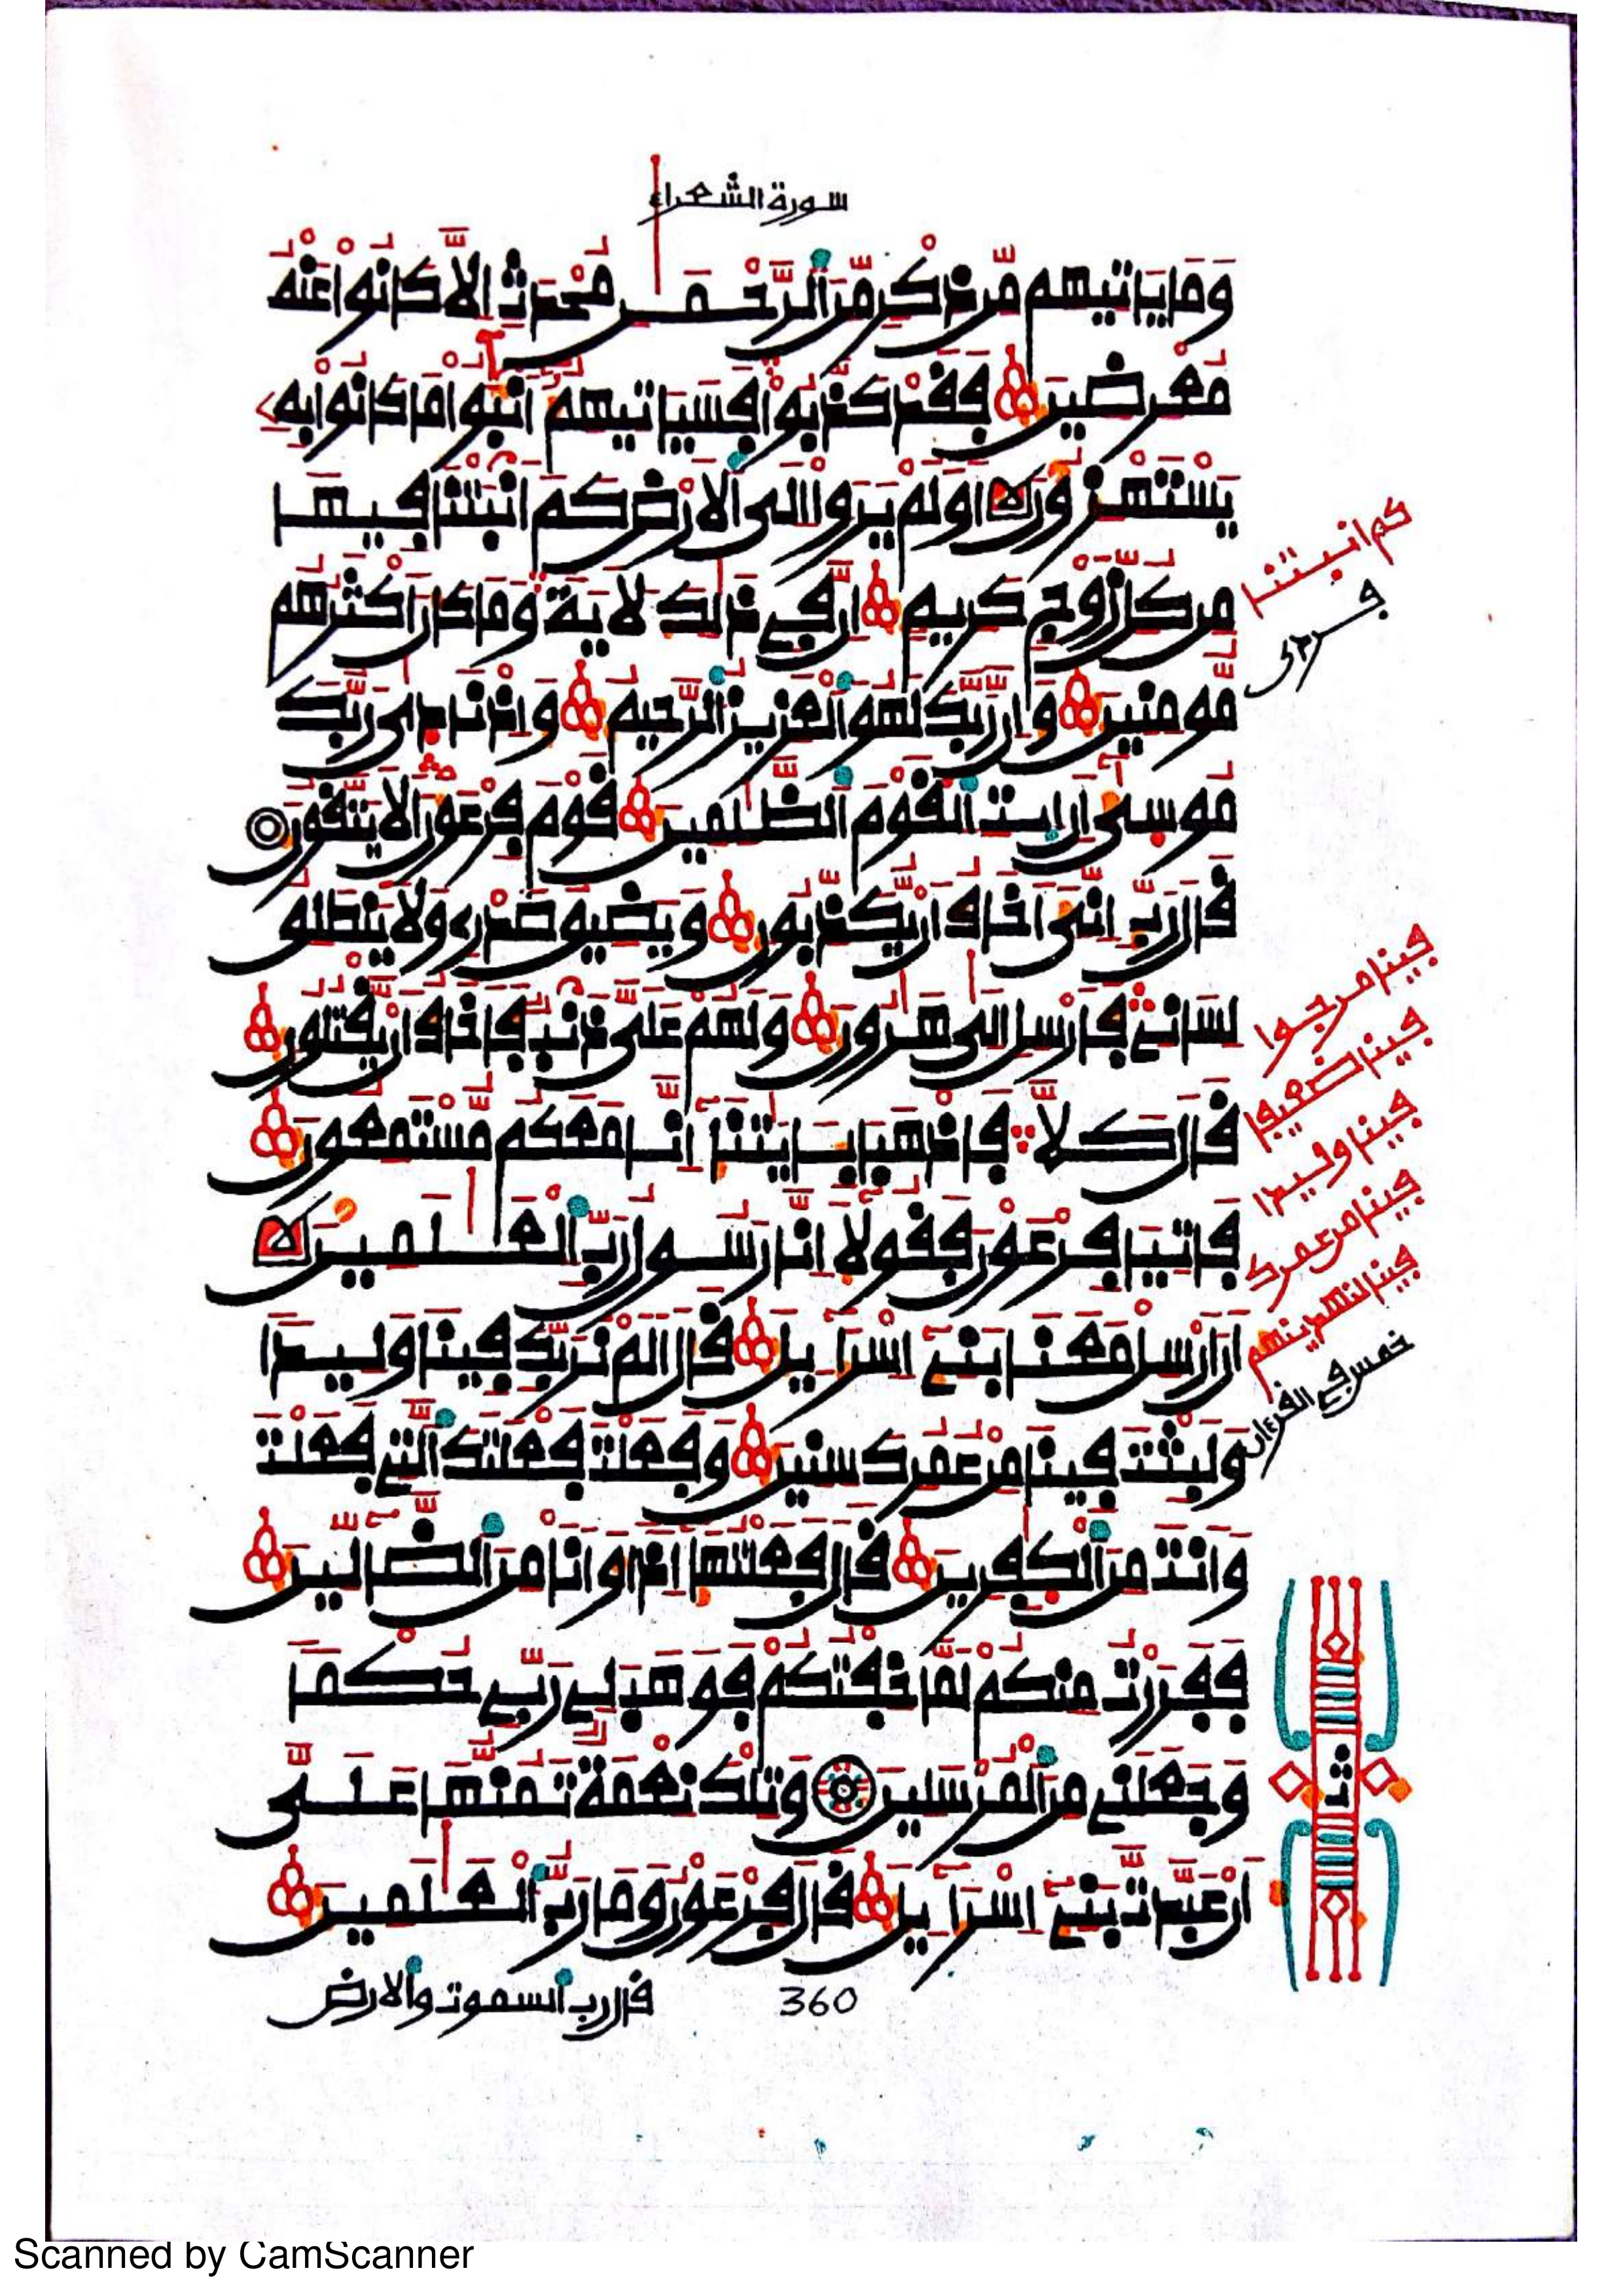 سورة الشعراء
وَمَا يَاتِيهِم مِّن ذِكْرٍ مِّنَ ٱلرَّحْمَٰنِ مُحْدَثٍ اِلَّا كَانُواْ عَنْهُ
مُعْرِضِينَ فَقَدْ كَذَّبُواْ فَسَيَاتِيهِمُ أَنْبَٰؤُاْ مَا كَانُواْ بِهِ
يَسْتَهْزِءُونَ اَوَلَمْ يَرَوِاْ اِلَى ٱلَارْضِ كَمَ اَنۢبَتْنَا فِيهَا
مِن كُلِّ زَوْجٍ كَرِيمٍ اِنَّ فِي ذَٰلِكَ لَأَيَةً وَمَا كَانَ أَكْثَرُهُم
مُّومِنِينَ وَإِنَّ رَبَّكَ لَهُوَ ٱلْعَزِيزُ ٱلرَّحِيمُ وَإِذْ نَادَىٰ رَبُّكَ
مُوسَىٰ أَنِ اِيتِ ٱلْقَوْمَ ٱلظَّٰلِمِينَ قَوْمَ فِرْعَوْنَ أَلَا يَتَّقُونَ
قَالَ رَبِّ إِنِّيَ أَخَافُ أَنْ يُّكَذِّبُونِ وَيَضِيقُ صَدْرِي وَلَا يَنطَلِقُ
لِسَانِي فَأَرْسِلِ اِلَىٰ هَٰرُونَ وَلَهُمْ عَلَيَّ ذَنۢبٌ فَأَخَافُ أَنْ يَّقْتُلُونِ
قَالَ كَلَّا فَاذْهَبَا بِـَٔايَٰتِنَا إِنَّا مَعَكُم مُّسْتَمِعُونَ
فَاتِيَا فِرْعَوْنَ فَقُولَا إِنَّا رَسُولُ رَبِّ ٱلْعَٰلَمِينَ
أَنَ اَرْسِلْ مَعَنَا بَنِي إِسْرَآءِيلَ قَالَ أَلَمْ نُرَبِّكَ فِينَا وَلِيدًا
وَلَبِثْتَ فِينَا مِنْ عُمُرِكَ سِنِينَ وَفَعَلْتَ فَعْلَتَكَ ٱلتِي فَعَلْتَ
وَأَنتَ مِنَ ٱلْكَٰفِرِينَ قَالَ فَعَلْتُهَا إِذًا وَأَنَا مِنَ ٱلضَّآلِّينَ
فَفَرَرْتُ مِنكُمْ لَمَّا خِفْتُكُمْ فَوَهَبَ لِي رَبِّي حُكْمًا
وَجَعَلَنِي مِنَ ٱلْمُرْسَلِينَ وَتِلْكَ نِعْمَةٌ تَمُنُّهَا عَلَيَّ
أَنْ عَبَّدتَّ بَنِي إِسْرَآءِيلَ قَالَ فِرْعَوْنُ وَمَا رَبُّ ٱلْعَٰلَمِينَ
قال رب ٱلسموت وٱلارض
360
كم انبتنا
فينا مرجوا
فينا ضعيفا
فينا وليدا
فينا من عمرك
فينا لنهدينهم
خمس في القرءان
ثمن
Scanned by CamScanner